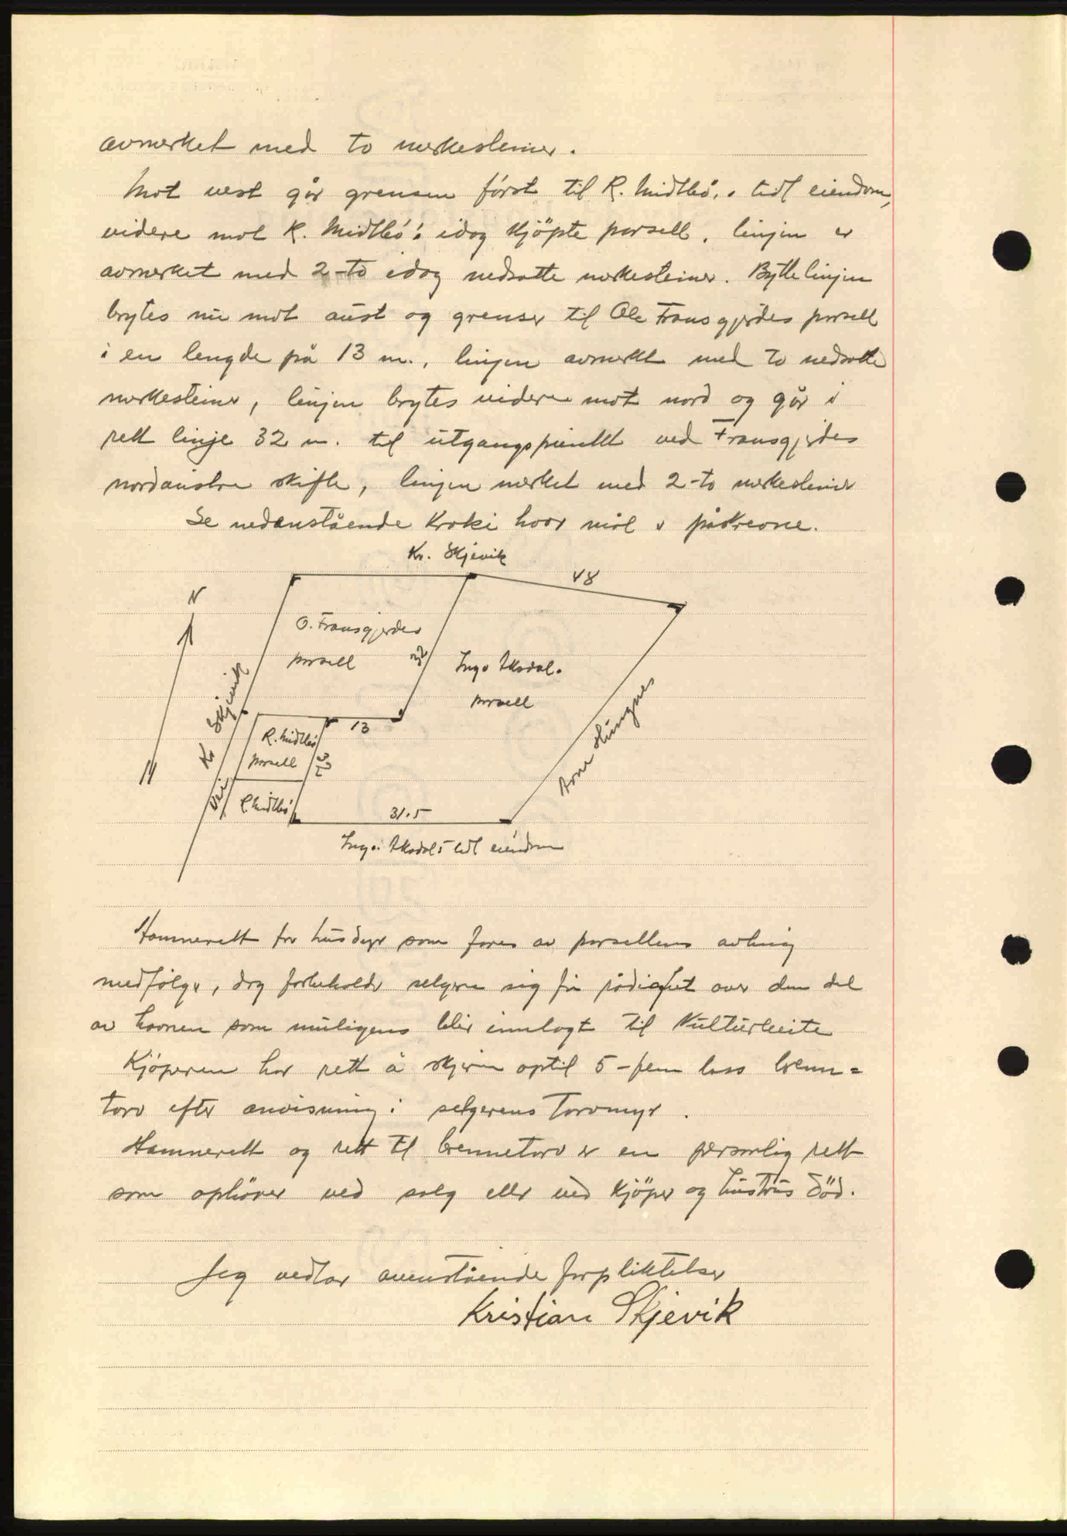 avmerket med to merkesteiner.
Mot vest går grensen først til R. Midtbø's tidl eiendom,
videre mot R. Midtbø's idag kjøpte parsell. linjen er
avmerket med 2-to idag nedsatte merkesteiner. Byttelinjen
brytes nu mot aust og grenser til Ole Fransgjerdes parsell
i en lengde på 13 m., linjen avmerkt med to nedsatte
merkesteiner, linjen brytes videre mot nord og går i
rett linje 32 m. til utgangspunkt ved Fransgjerdes
nordaustre skifte, linjen merket med 2-to merkesteiner
Se nedenstående kroki hvor mål er påskrevne.
Kr. Skjevik
48
N
O. Fransgjerdes
parsell
32
Kr Skjevik
parsell
Arne Hungnes
13
R. Midtbø
parsell
Vei
R. Midtbø
31.5
tidl eiendom
Hamnerett for husdyr som fores av parsellens avling
medfølger, dog forbeholder selgeren sig fri rådighet over den del
av havnen som muligens blir innlagt til kulturbeite
Kjøperen har rett å skjære optil 5-fem lass brenn=
torv efter anvisning i selgerens Torvmyr.
Hamnerett og rett til brennetorv er en personlig rett
som ophører ved salg eller ved kjøper og hustrus død.
Jeg vedtar ovenstående forpliktelser
Kristian Skjevik